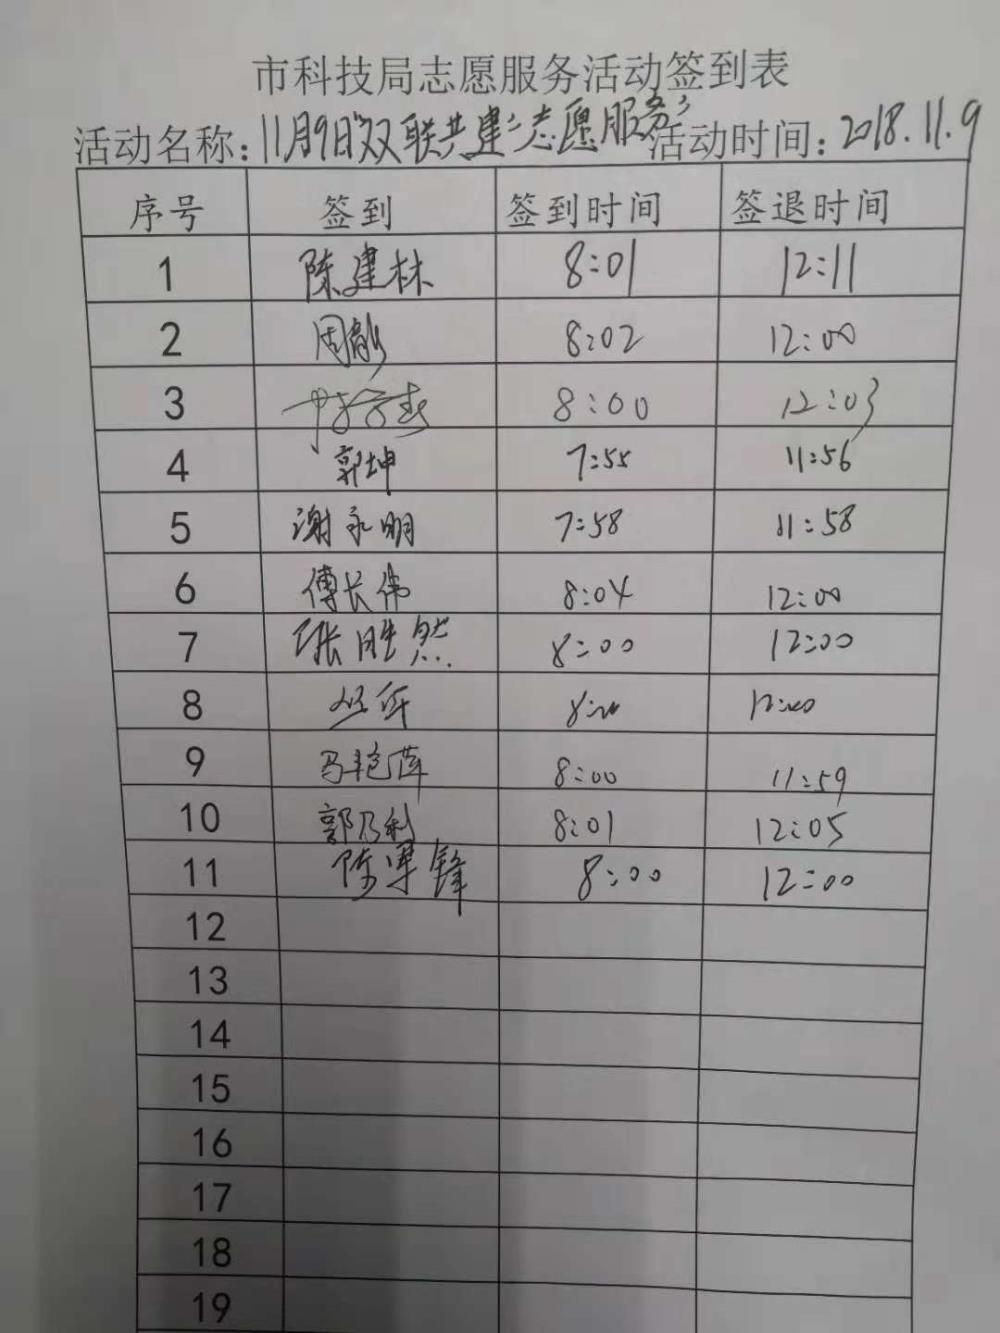 市科技局志愿服务活动签到表
活动名称：11月9日"双联共建"志愿服务 活动时间：2018.11.9
序号 签到 签到时间 签退时间
1 陈建林 8:01 12:11
2 周 8:02 12:00
3 8:00 12:03
4 郭坤 7:55 11:56
5 谢永明 7:58 11:58
6 傅长伟 8:04 12:00
7 张胜然 8:00 12:00
8 8:00 12:00
9 马艳萍 8:00 11:59
10 郭乃利 8:01 12:05
11 陈军锋 8:00 12:00
12
13
14
15
16
17
18
19